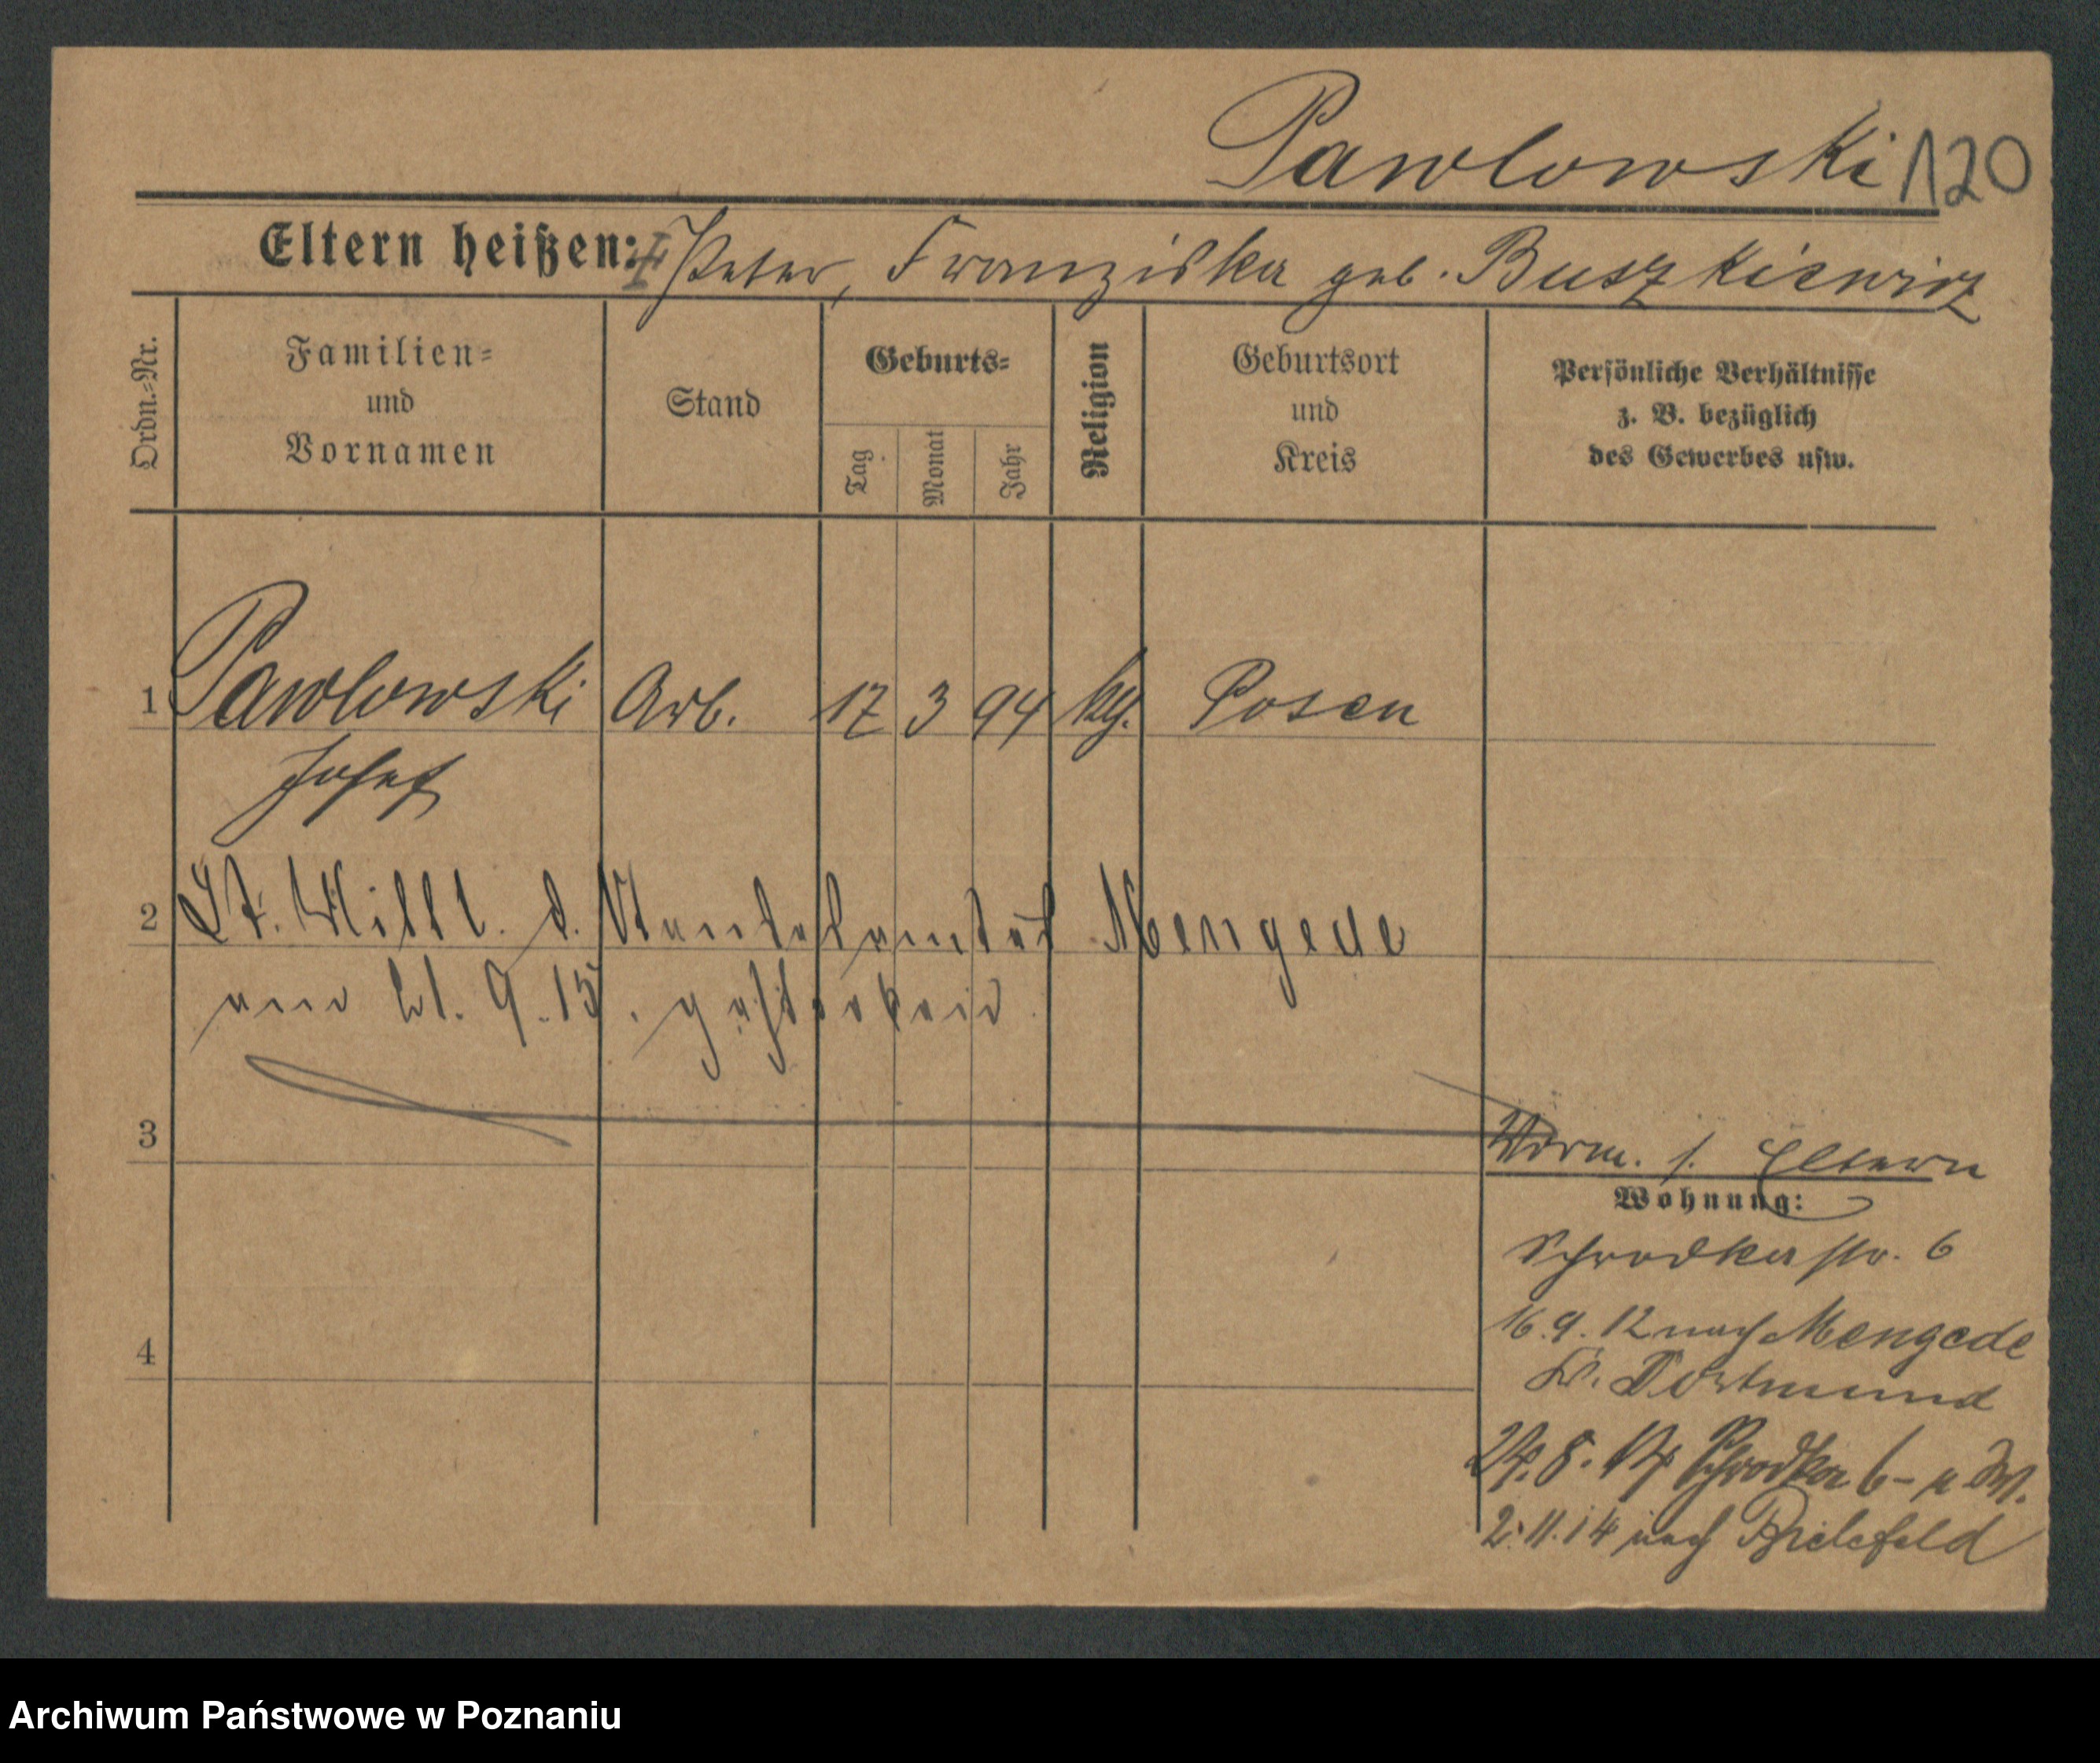 Pawlowski 120
Eltern heißen: Peter, Franziska geb. Buszkiewicz
Ordn.-Nr.
Familien-
und
Vornamen
Stand
Geburts-
Tag
Monat
Jahr
Religion
Geburtsort
und
Kreis
Persönliche Verhältnisse
z. B. bezüglich
des Gewerbes usw.
1 Pawlowski Arb. 17 3 94 kg. Posen
Josef
2 Lt. Mittl. d. Standesamtes Mengede
am 21. 9. 15. gestorben
3
Vorm. s. Eltern
Wohnung:
Schrodkastr. 6
16.9.12 nach Mengede
Kr. Dortmund
4
24.8.14 Schrodka 6 -
2.11.14 nach Bielefeld
Archiwum Państwowe w Poznaniu